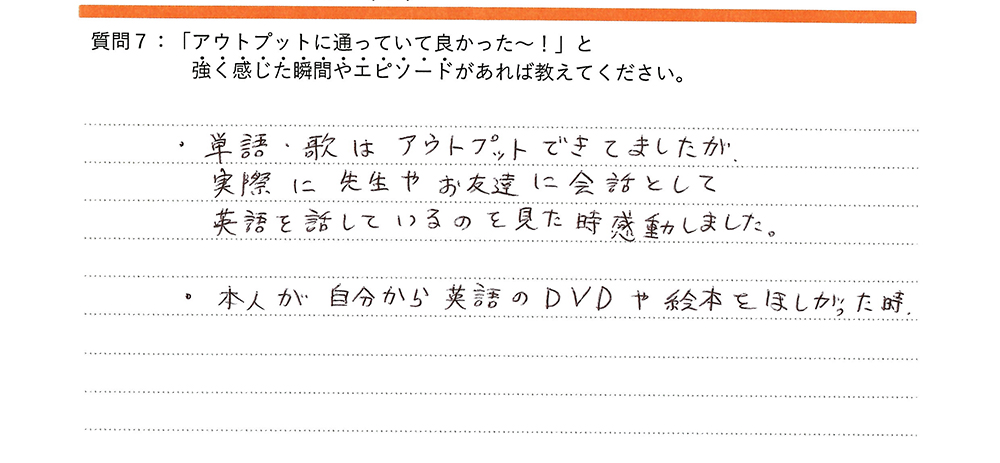 質問7：「アウトプットに通っていて良かった～！」と
強く感じた瞬間やエピソードがあれば教えてください。
・単語・歌はアウトプットできてましたが、
実際に先生やお友達に会話として
英語を話しているのを見た時感動しました。
・本人が自分から英語のDVDや絵本をほしがった時、